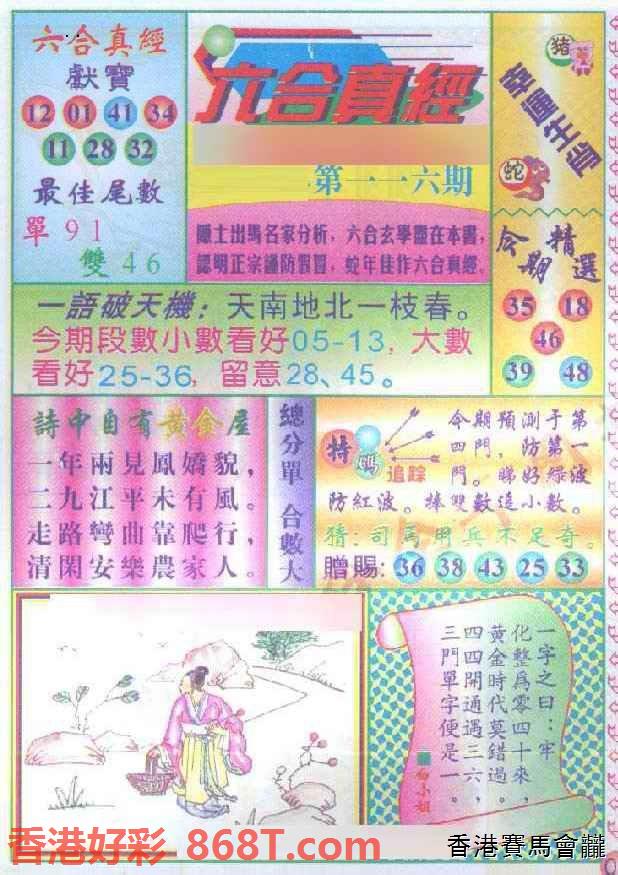 六合真經
獻寶
12 01 41 34
11 28 32
最佳尾數
單91
雙46
六合真經
第一一六期
隱士出馬名家分析，六合玄學盡在本書，
認明正宗謹防假冒，蛇年佳作六合真經。
豬
蛇
今期精選
35 18
46
39 48
一語破天機：天南地北一枝春。
今期段數小數看好05-13，大數
看好25-36，留意28、45。
詩中自有黃金屋
一年兩見鳳嬌貌，
二九江平未有風。
走路彎曲靠爬行，
清閑安樂農家人。
總分單 合數大
特碼
追踪
今期預測于第
四門，防第一
門。睇好綠波
防紅波。捧雙數追小數。
猜：司馬用兵不足奇。
贈賜：36 38 43 25 33
一字之曰：牢
化整為零四十來，
黃金時代莫錯過。
四四開通遇三六，
三門單字便是一。
白小姐
香港好彩 868T.com
香港賽馬會